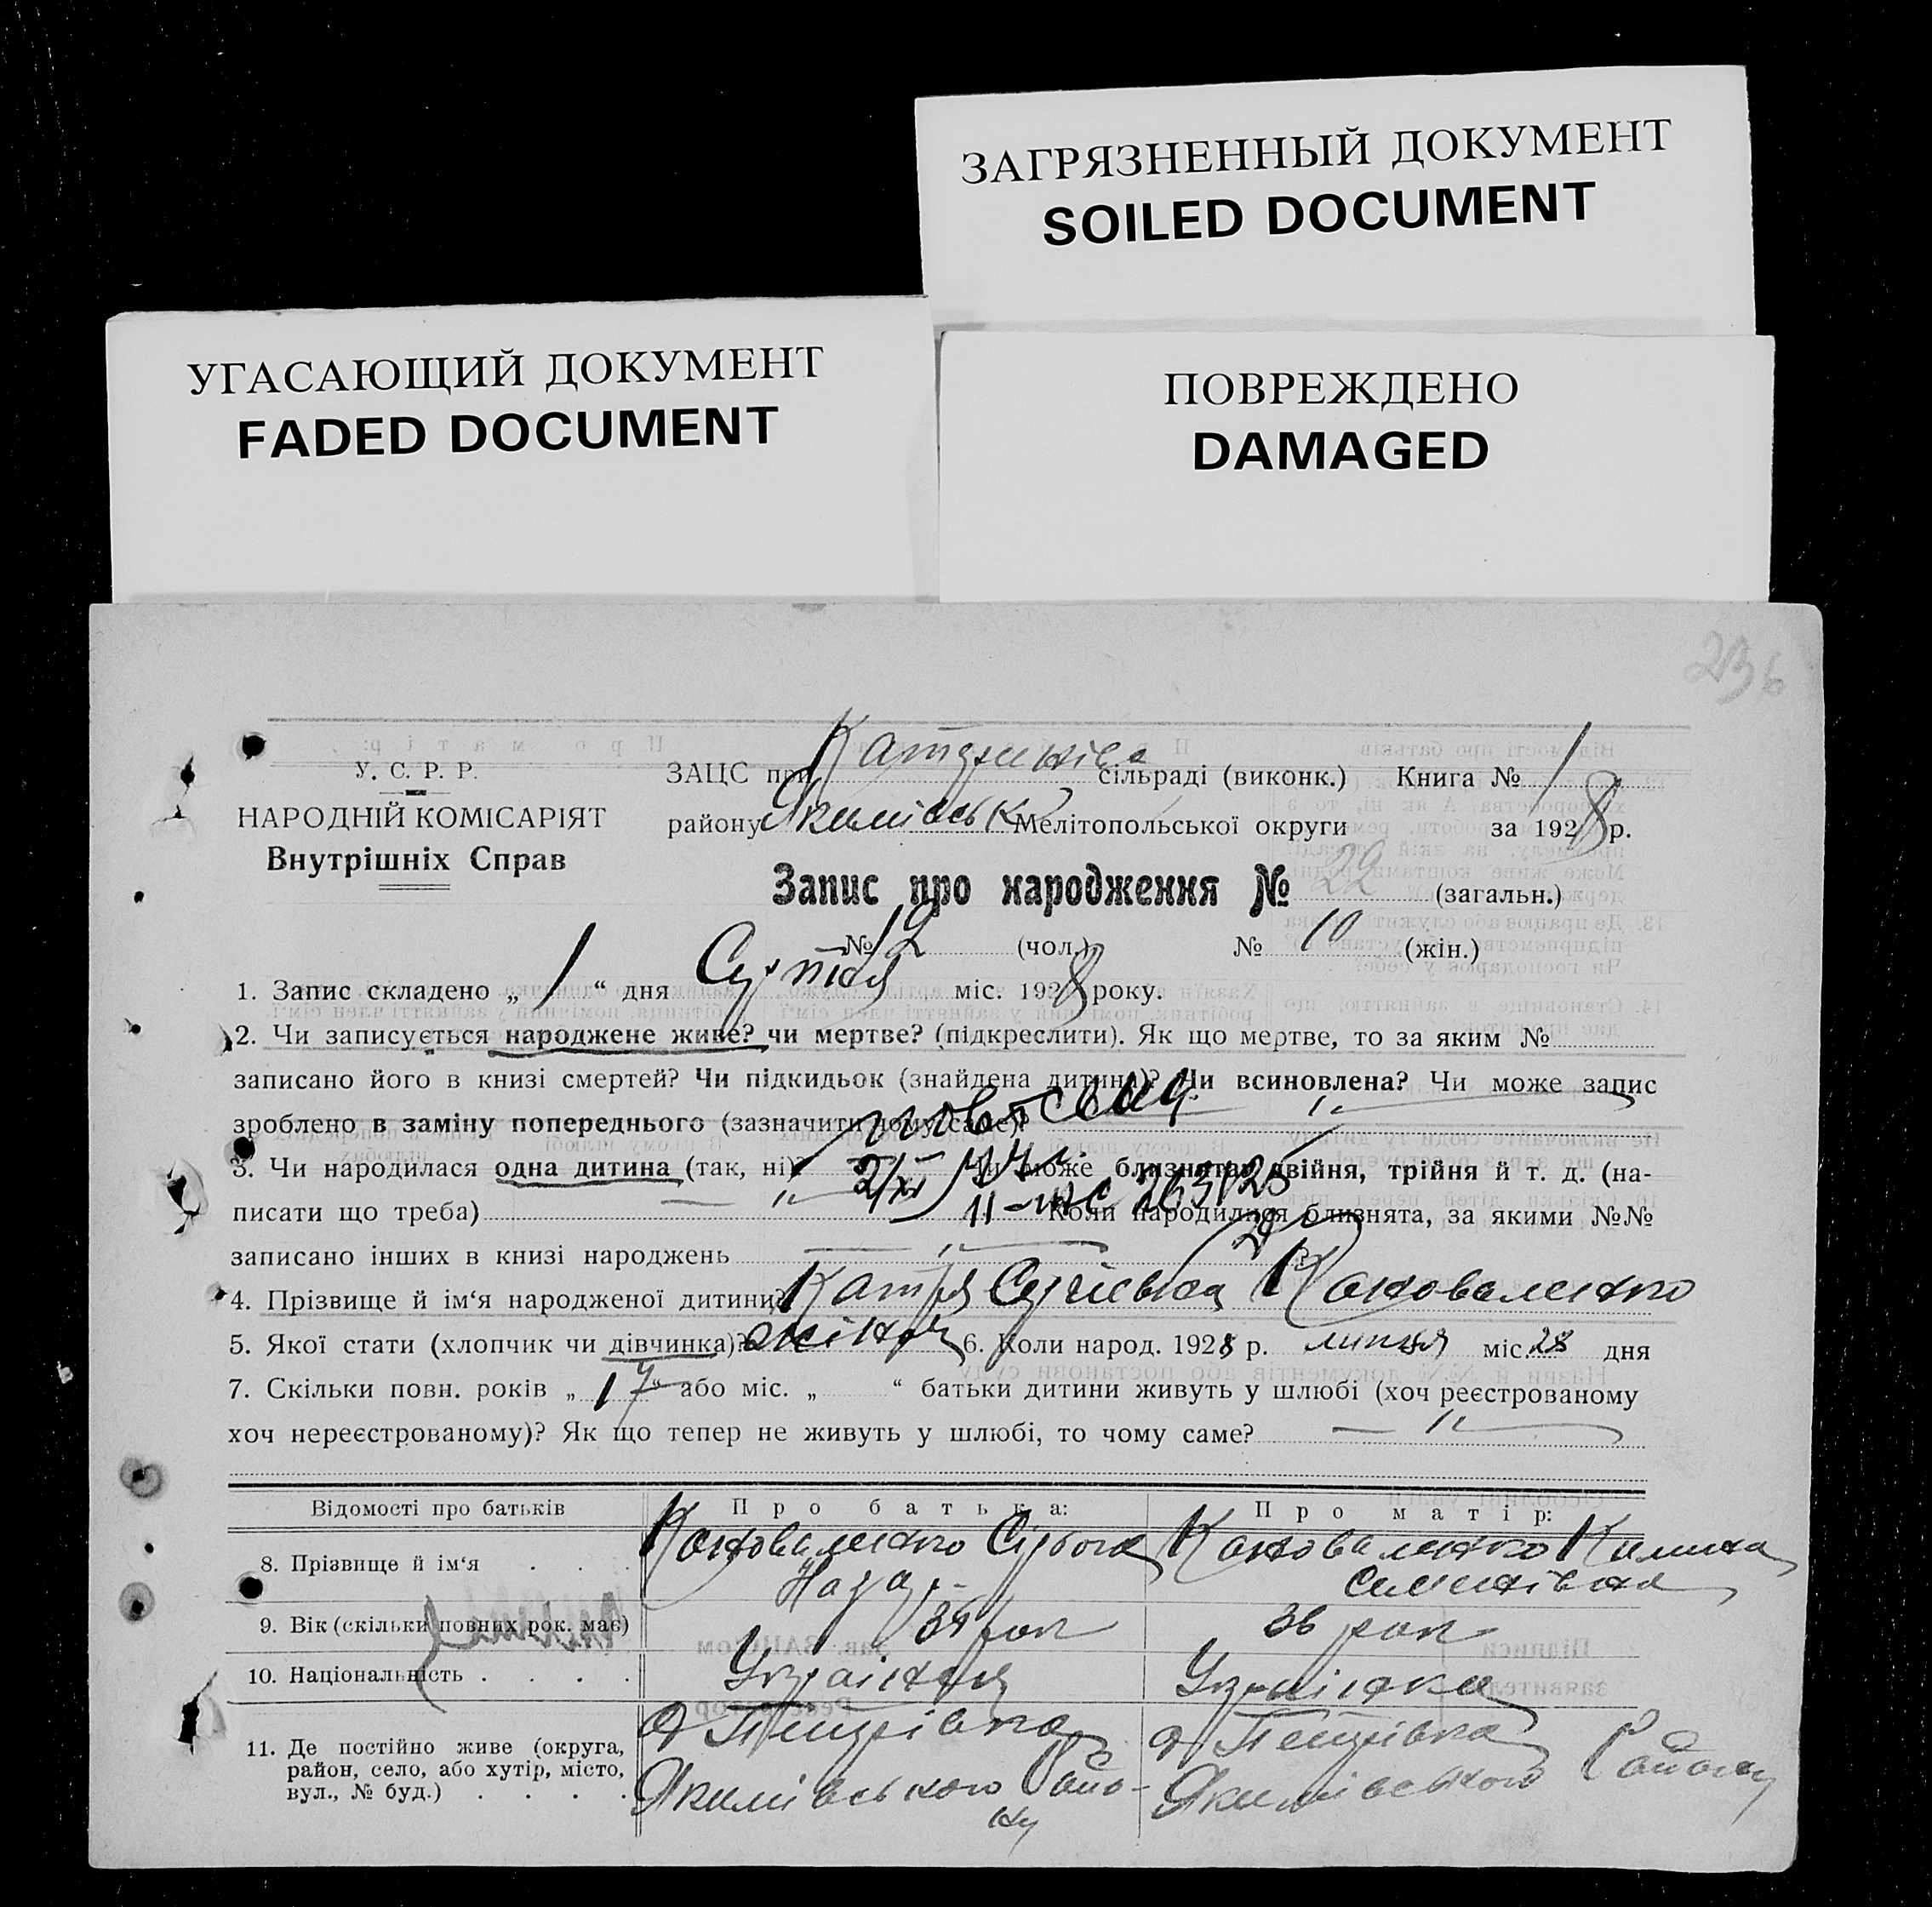 ЗАГРЯЗНЕННЫЙ ДОКУМЕНТ
SOILED DOCUMENT
УГАСАЮЩИЙ ДОКУМЕНТ
FADED DOCUMENT
ПОВРЕЖДЕНО
DAMAGED
236
У. С. Р. Р.
НАРОДНІЙ КОМІСАРІЯТ
Внутрішніх Справ
ЗАЦС при сільраді (виконк.) Книга № 1
району Якимівськ Мелітопольської округи за 1928 р.
Запис про народження № 22 (загальн.)
№ 12 (чол.) № 10 (жін.)
1. Запис складено „ 1 “ дня Серпня міс. 1928 року.
2. Чи записується народжене живе? чи мертве? (підкреслити). Як що мертве, то за яким №
записано його в книзі смертей? Чи підкидьок (знайдена дитина)? Чи всиновлена? Чи може запис
зроблено в заміну попереднього (зазначити чому саме)?
3. Чи народилася одна дитина (так, ні)? Чи може близнята, двійня, трійня й т. д. (на-
писати що треба) Коли народилися близнята, за якими №№
записано інших в книзі народжень
4. Прізвище й ім‘я народженої дитини? Катря Сергіевна Коноваленко
5. Якої стати (хлопчик чи дівчинка)? жіноч 6. Коли народ. 1928 р. липця міс. 28 дня
7. Скільки повн. років „ 17 “ або міс. „ “ батьки дитини живуть у шлюбі (хоч реєстрованому
хоч нереєстрованому)? Як що тепер не живуть у шлюбі, то чому саме?
Відомості про батьків Про батька: Про матір:
8. Прізвище й ім‘я . . . Коноваленко Назар. Коноваленко Килина
Семенівна
9. Вік (скільки повних рок. має) рок 36 рок
10. Національність . . . . Українец Українка
11. Де постійно живе (округа,
район, село, або хутір, місто,
вул., № буд.) . . . .
Петрівка Петрівка
Якимівського Райо-
ну
Якимівського Району